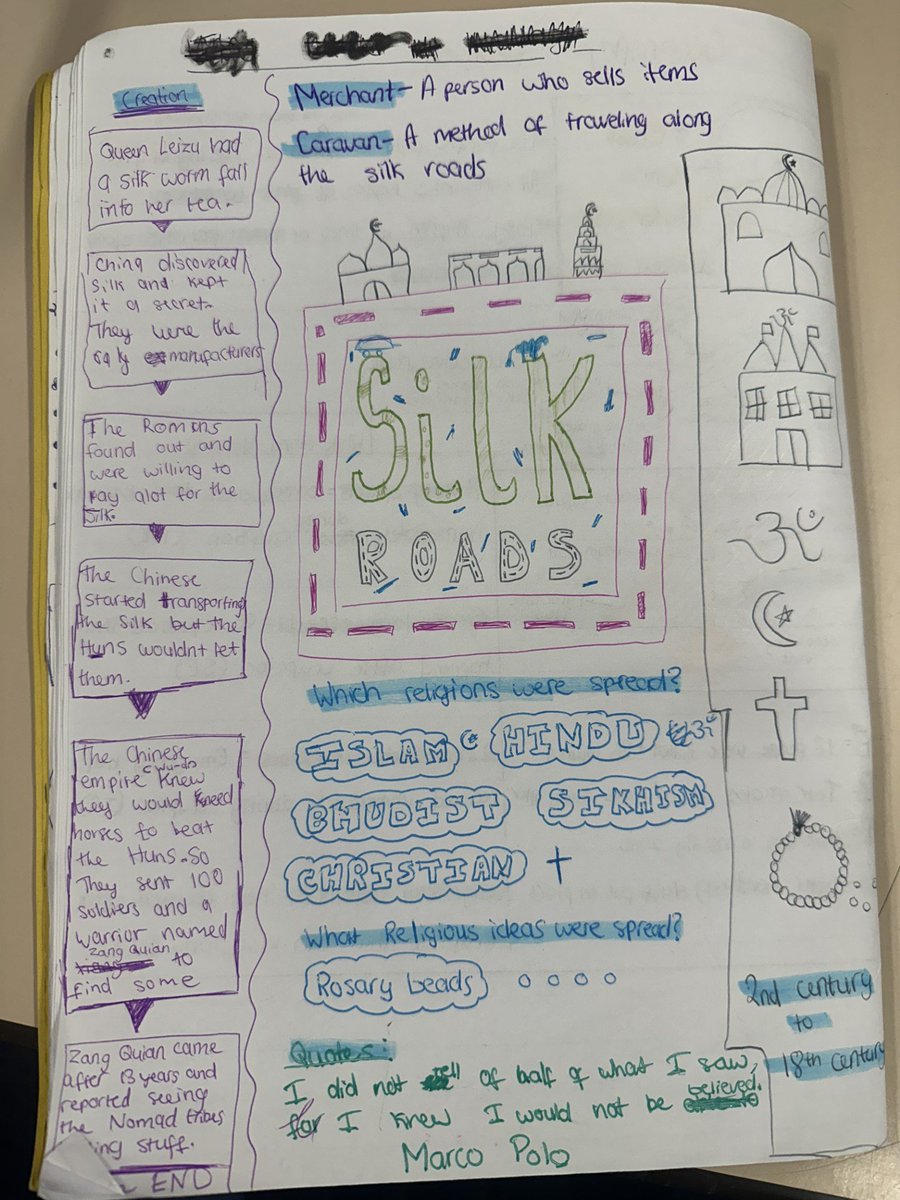 Creation
Queen Leizu had
a silk worm fall
into her tea.
China discovered
silk and kept
it a secret.
They were the
only manufacturers
The Romans
found out and
were willing to
pay alot for the
silk.
The Chinese
started transporting
the silk but the
Huns wouldnt let
them.
The Chinese
empire knew
they would need
horses to beat
the Huns. So
They sent 100
soldiers and a
warrior named
Zang Quian
to
find some
Zang Quian came
after 13 years and
reported seeing
the Nomad tribes
stuff.
END
Merchant- A person who sells items
Caravan- A method of traveling along
the silk roads
SiLK
ROADS
Which religions were spread?
ISLAM HINDU
BHUDIST SIKHISM
CHRISTIAN
What Religious ideas were spread?
Rosary beads
Quotes:
I did not of half of what I saw,
for I knew I would not be believed.
Marco Polo
ॐ
ॐ
2nd century
to
18th century